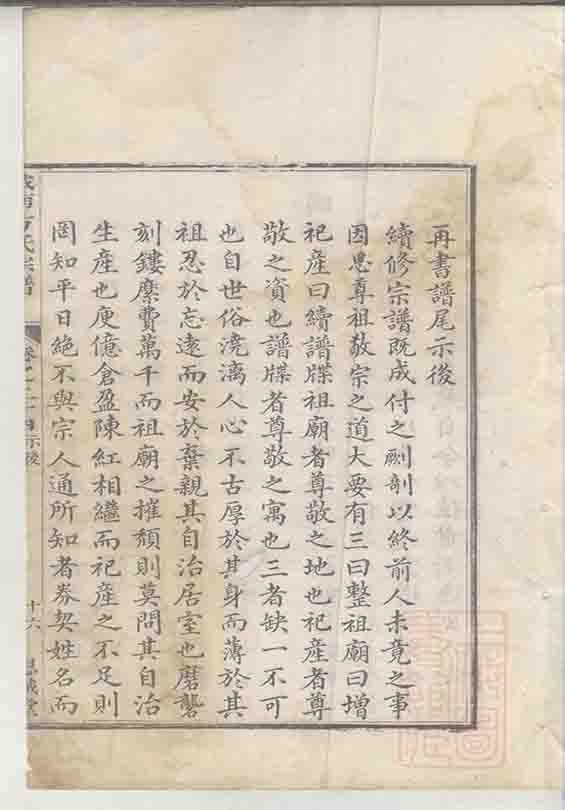 再書譜尾示後
續修宗譜既成付之剞劂以終前人未竟之事
因思尊祖敬宗之道大要有三曰整祖廟曰增
祀產曰續譜牒祖廟者尊敬之地也祀產者尊
敬之資也譜牒者尊敬之寓也三者缺一不可
也自世俗澆漓人心不古厚於其身而薄於其
祖忍於忘遠而安於棄親其自治居室也磨礱
刻鏤縻費萬千而祖廟之摧頹則莫問其自治
生產也庾億倉盈陳紅相繼而祀產之不足則
罔知平日絕不與宗人通所知者券契姓名而
方氏宗譜
示後
十六